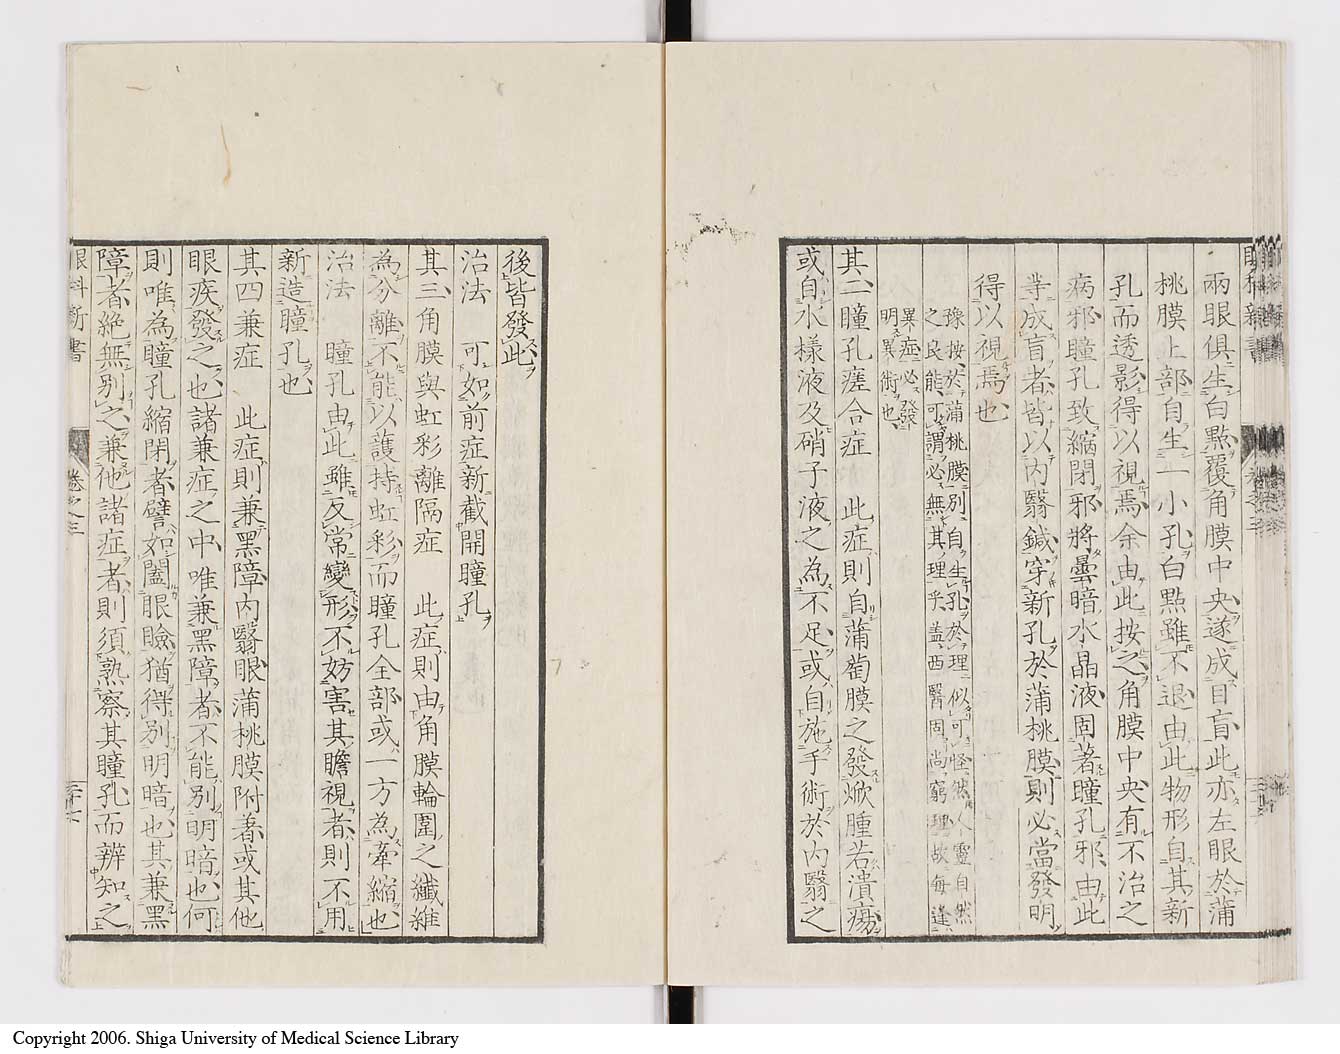 兩眼俱生白點覆角膜中央遂成目盲此亦左眼於蒲
桃膜上部自生一小孔白點雖不退由此物形自其新
孔而透影得以視焉余由此按之角膜中央有不治之
病邪瞳孔致縮閉邪將曇暗水晶液固著瞳孔邪由此
等成盲者皆以內翳鍼穿新孔於蒲桃膜則必當發明
得以視焉也
豫按於蒲桃膜別自生孔於理似可怪然人靈自然
之良能可謂必無其理乎盖西醫固尚窮理故每逢
異症必發
明異術也
其二瞳孔瘗合症 此症則自蒲萄膜之發焮腫若潰瘍
或自水樣液及硝子液之為不足或自施手術於內翳之
後皆發此
治法 可如前症新截開瞳孔
其三角膜與虹彩離隔症 此症則由角膜輪圍之纖維
為分離不能以護持虹彩而瞳孔全部或一方為牽縮也
治法 瞳孔由此雖反常變形不妨害其瞻視者則不用
新造瞳孔也
其四兼症 此症則兼黑障內翳眼蒲桃膜附著或其他
眼疾發之也諸兼症之中唯兼黑障者不能別明暗也何
則唯為瞳孔縮閉者譬如闔眼瞼猶得別明暗也其兼黑
障者絶無別之兼他諸症者則須熟察其瞳孔而辨知之
眼科新書
卷之三
Copyright 2006. Shiga University of Medical Science Library